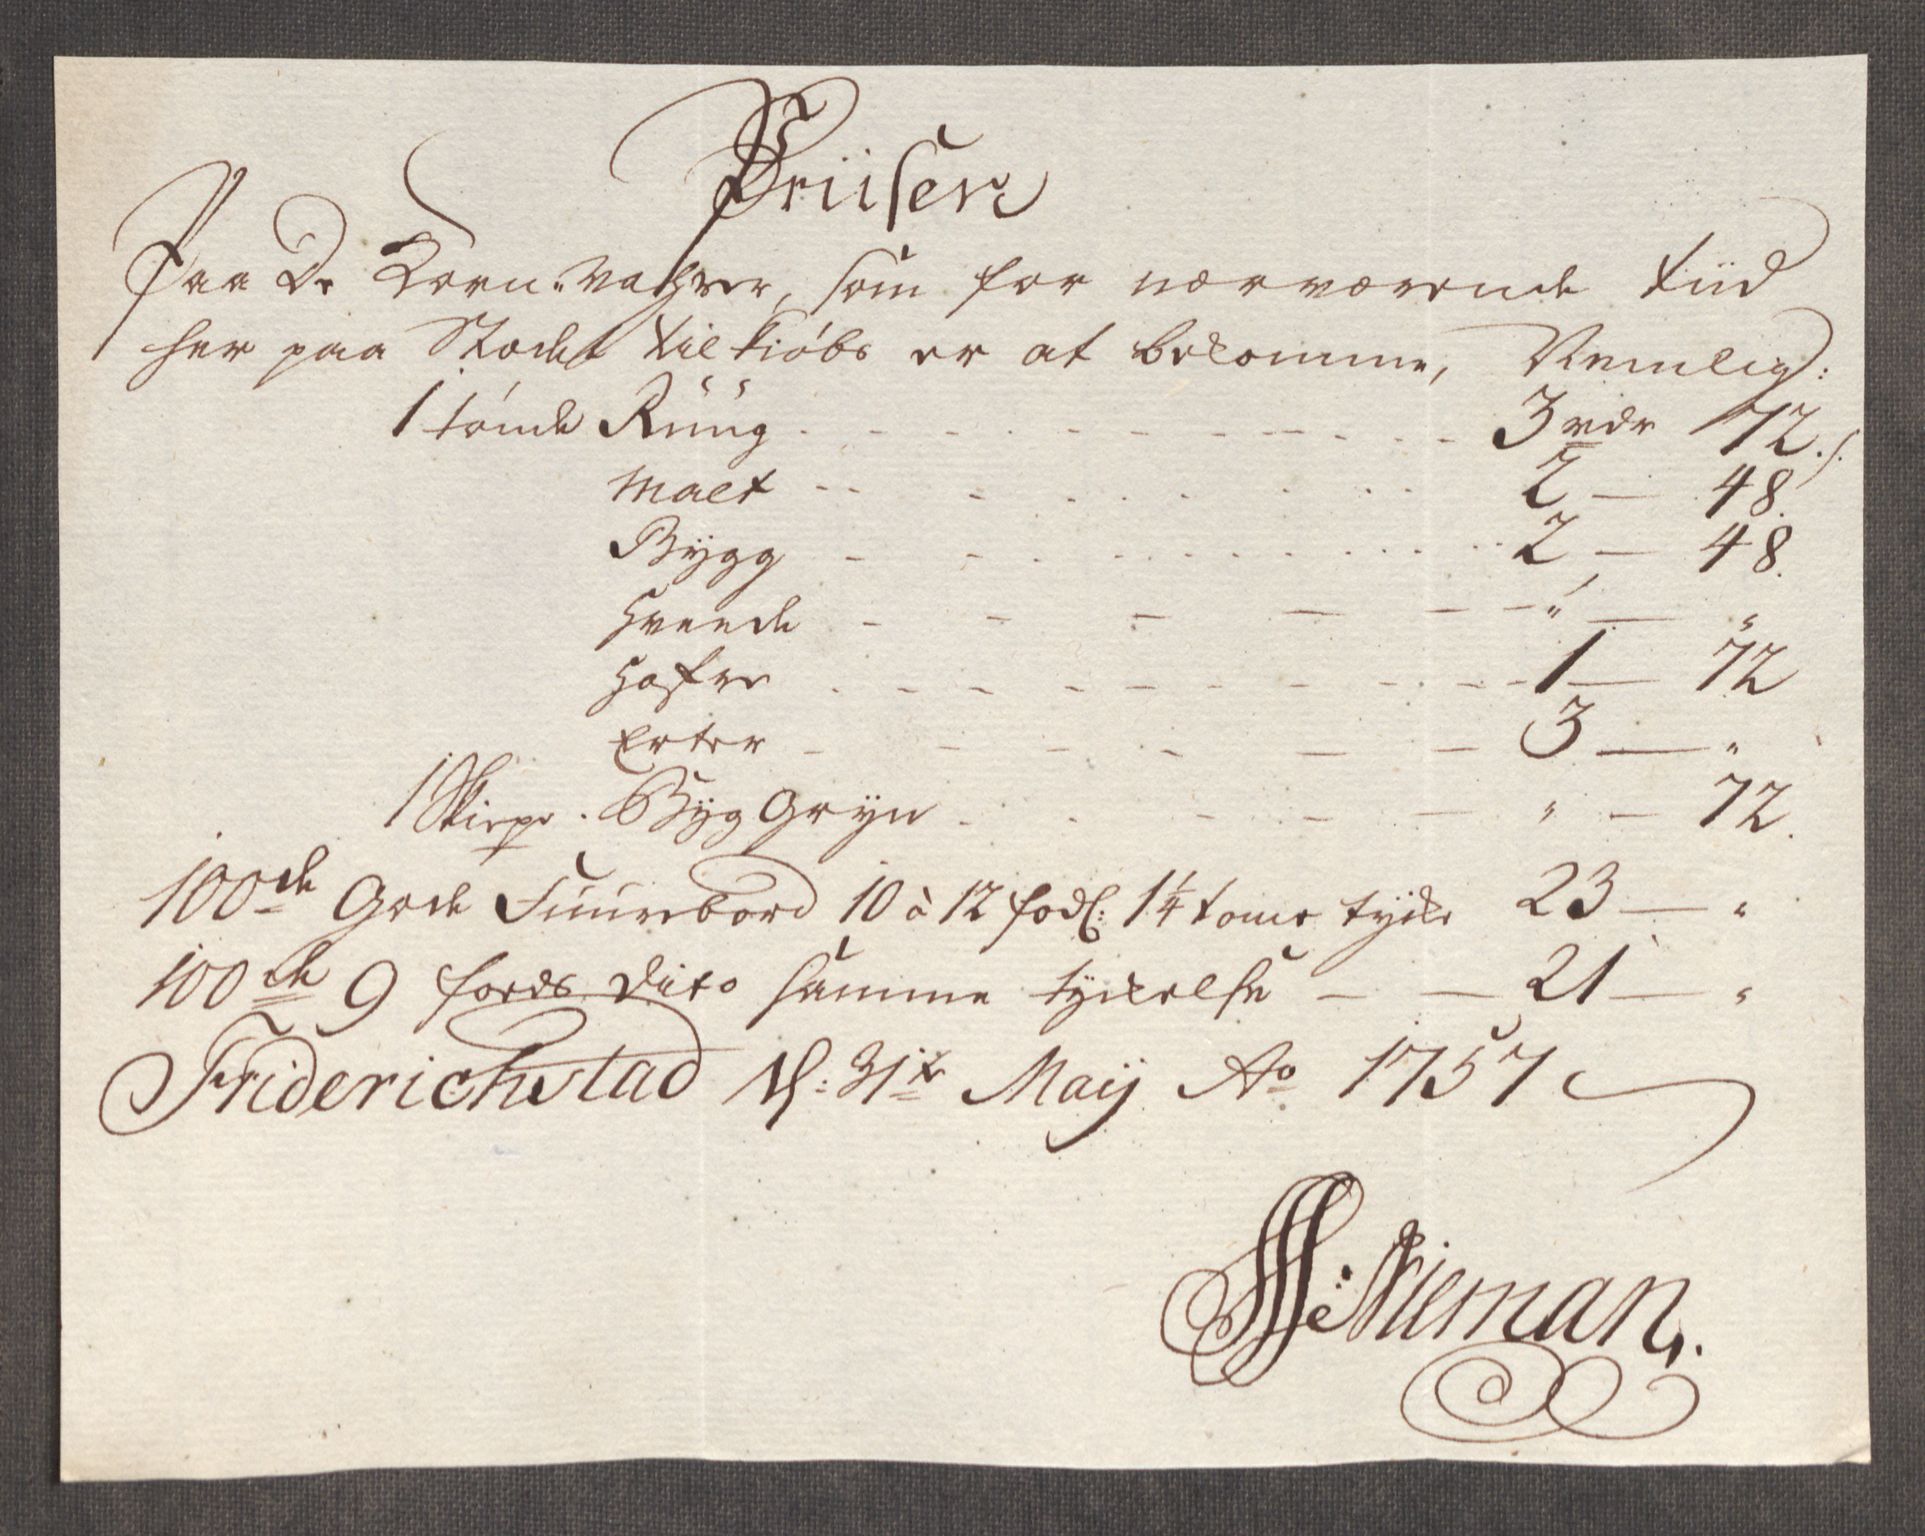 Priisen
Paa De Korn-Vahrer, som for nærværende tiid
her paa Stædet til kiöbs er at bekomme, Nemlig:
1 tönde Rüüg . - - - - - - - - - 3 rdr 72 s.
Malt - - - - - - 2 — 48.
Bÿgg - - - - - - 2 — 48.
Hvede - - - - - - " — "
Hafre - - - - - - 1 — 72
Erter - - - - - - 3 — "
1 Skiepe . Bÿg Grÿn - - - - - " — 72.
100de Gode Fuurebord 10 à 12 fod: 1¼ tome tycke 23 — "
100de 9 foeds dito samme tyckelse — — 21 — "
Friderichstad d: 31te Maij Ao 1757
Nieman.